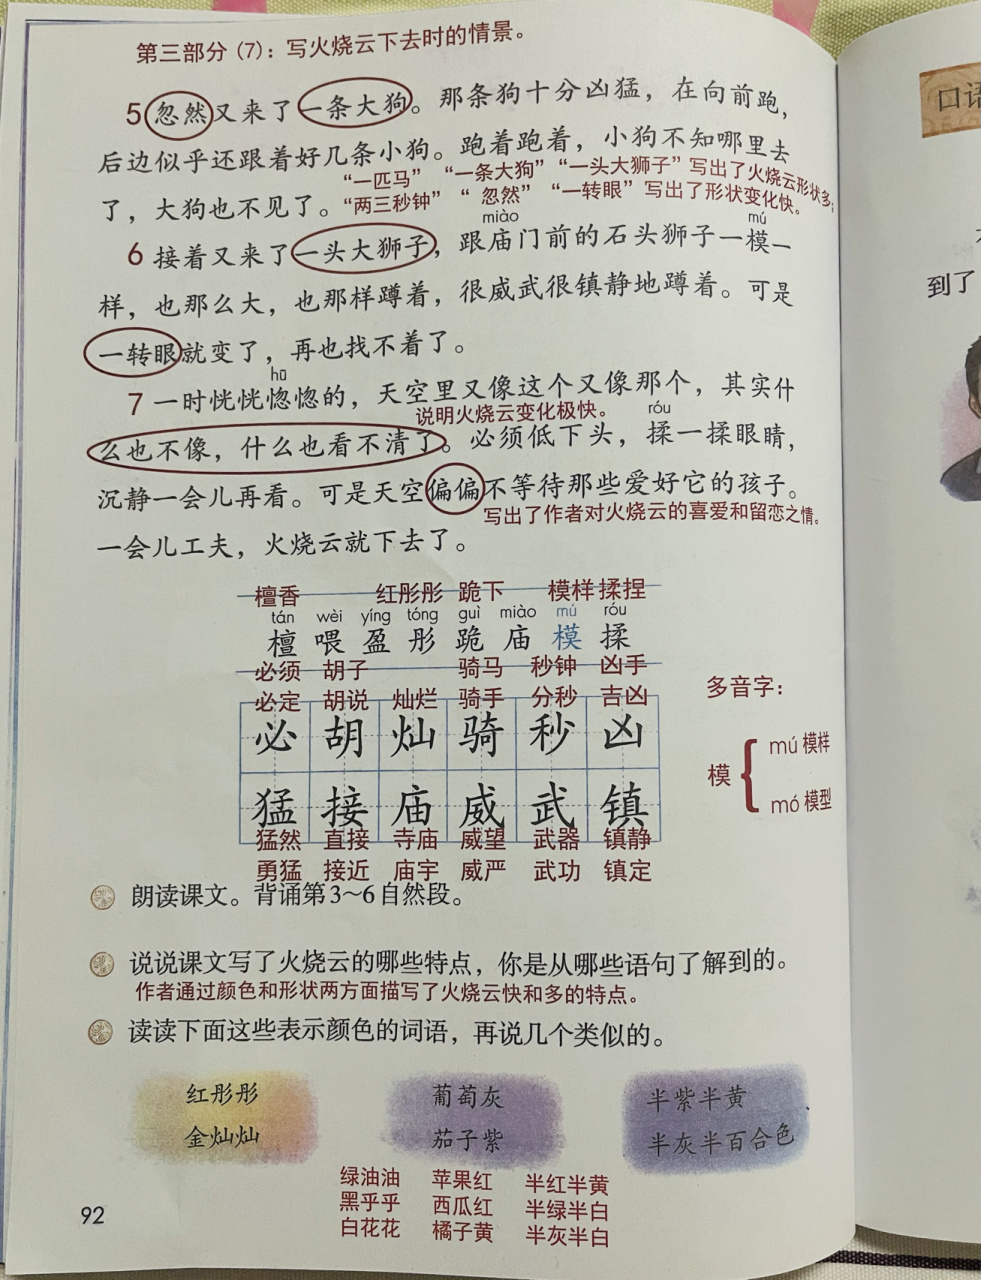 第三部分（7）：写火烧云下去时的情景。
5 忽然又来了一条大狗。那条狗十分凶猛，在向前跑，
后边似乎还跟着好几条小狗。跑着跑着，小狗不知哪里去
“一匹马” “一条大狗” “一头大狮子”写出了火烧云形状多；
了，大狗也不见了。
“两三秒钟” “忽然” “一转眼”写出了形状变化快。
miào mú
6 接着又来了一头大狮子，跟庙门前的石头狮子一模一
样，也那么大，也那样蹲着，很威武很镇静地蹲着。可是
一转眼就变了，再也找不着了。
hū
7 一时恍恍惚惚的，天空里又像这个又像那个，其实什
说明火烧云变化极快。
róu
么也不像，什么也看不清了。必须低下头，揉一揉眼睛，
沉静一会儿再看。可是天空偏偏不等待那些爱好它的孩子。
写出了作者对火烧云的喜爱和留恋之情。
一会儿工夫，火烧云就下去了。
檀香 红彤彤 跪下 模样 揉捏
tán wèi yíng tóng guì miào mú róu
檀 喂 盈 彤 跪 庙 模 揉
必须 胡子 骑马 秒钟 凶手
必定 胡说 灿烂 骑手 分秒 吉凶
必 胡 灿 骑 秒 凶
猛 接 庙 威 武 镇
猛然 直接 寺庙 威望 武器 镇静
勇猛 接近 庙宇 威严 武功 镇定
多音字：
模
mú 模样
mó 模型
朗读课文。背诵第3～6自然段。
说说课文写了火烧云的哪些特点，你是从哪些语句了解到的。
作者通过颜色和形状两方面描写了火烧云快和多的特点。
读读下面这些表示颜色的词语，再说几个类似的。
红彤彤 葡萄灰 半紫半黄
金灿灿 茄子紫 半灰半百合色
绿油油 苹果红 半红半黄
黑乎乎 西瓜红 半绿半白
白花花 橘子黄 半灰半白
92
口语
到了